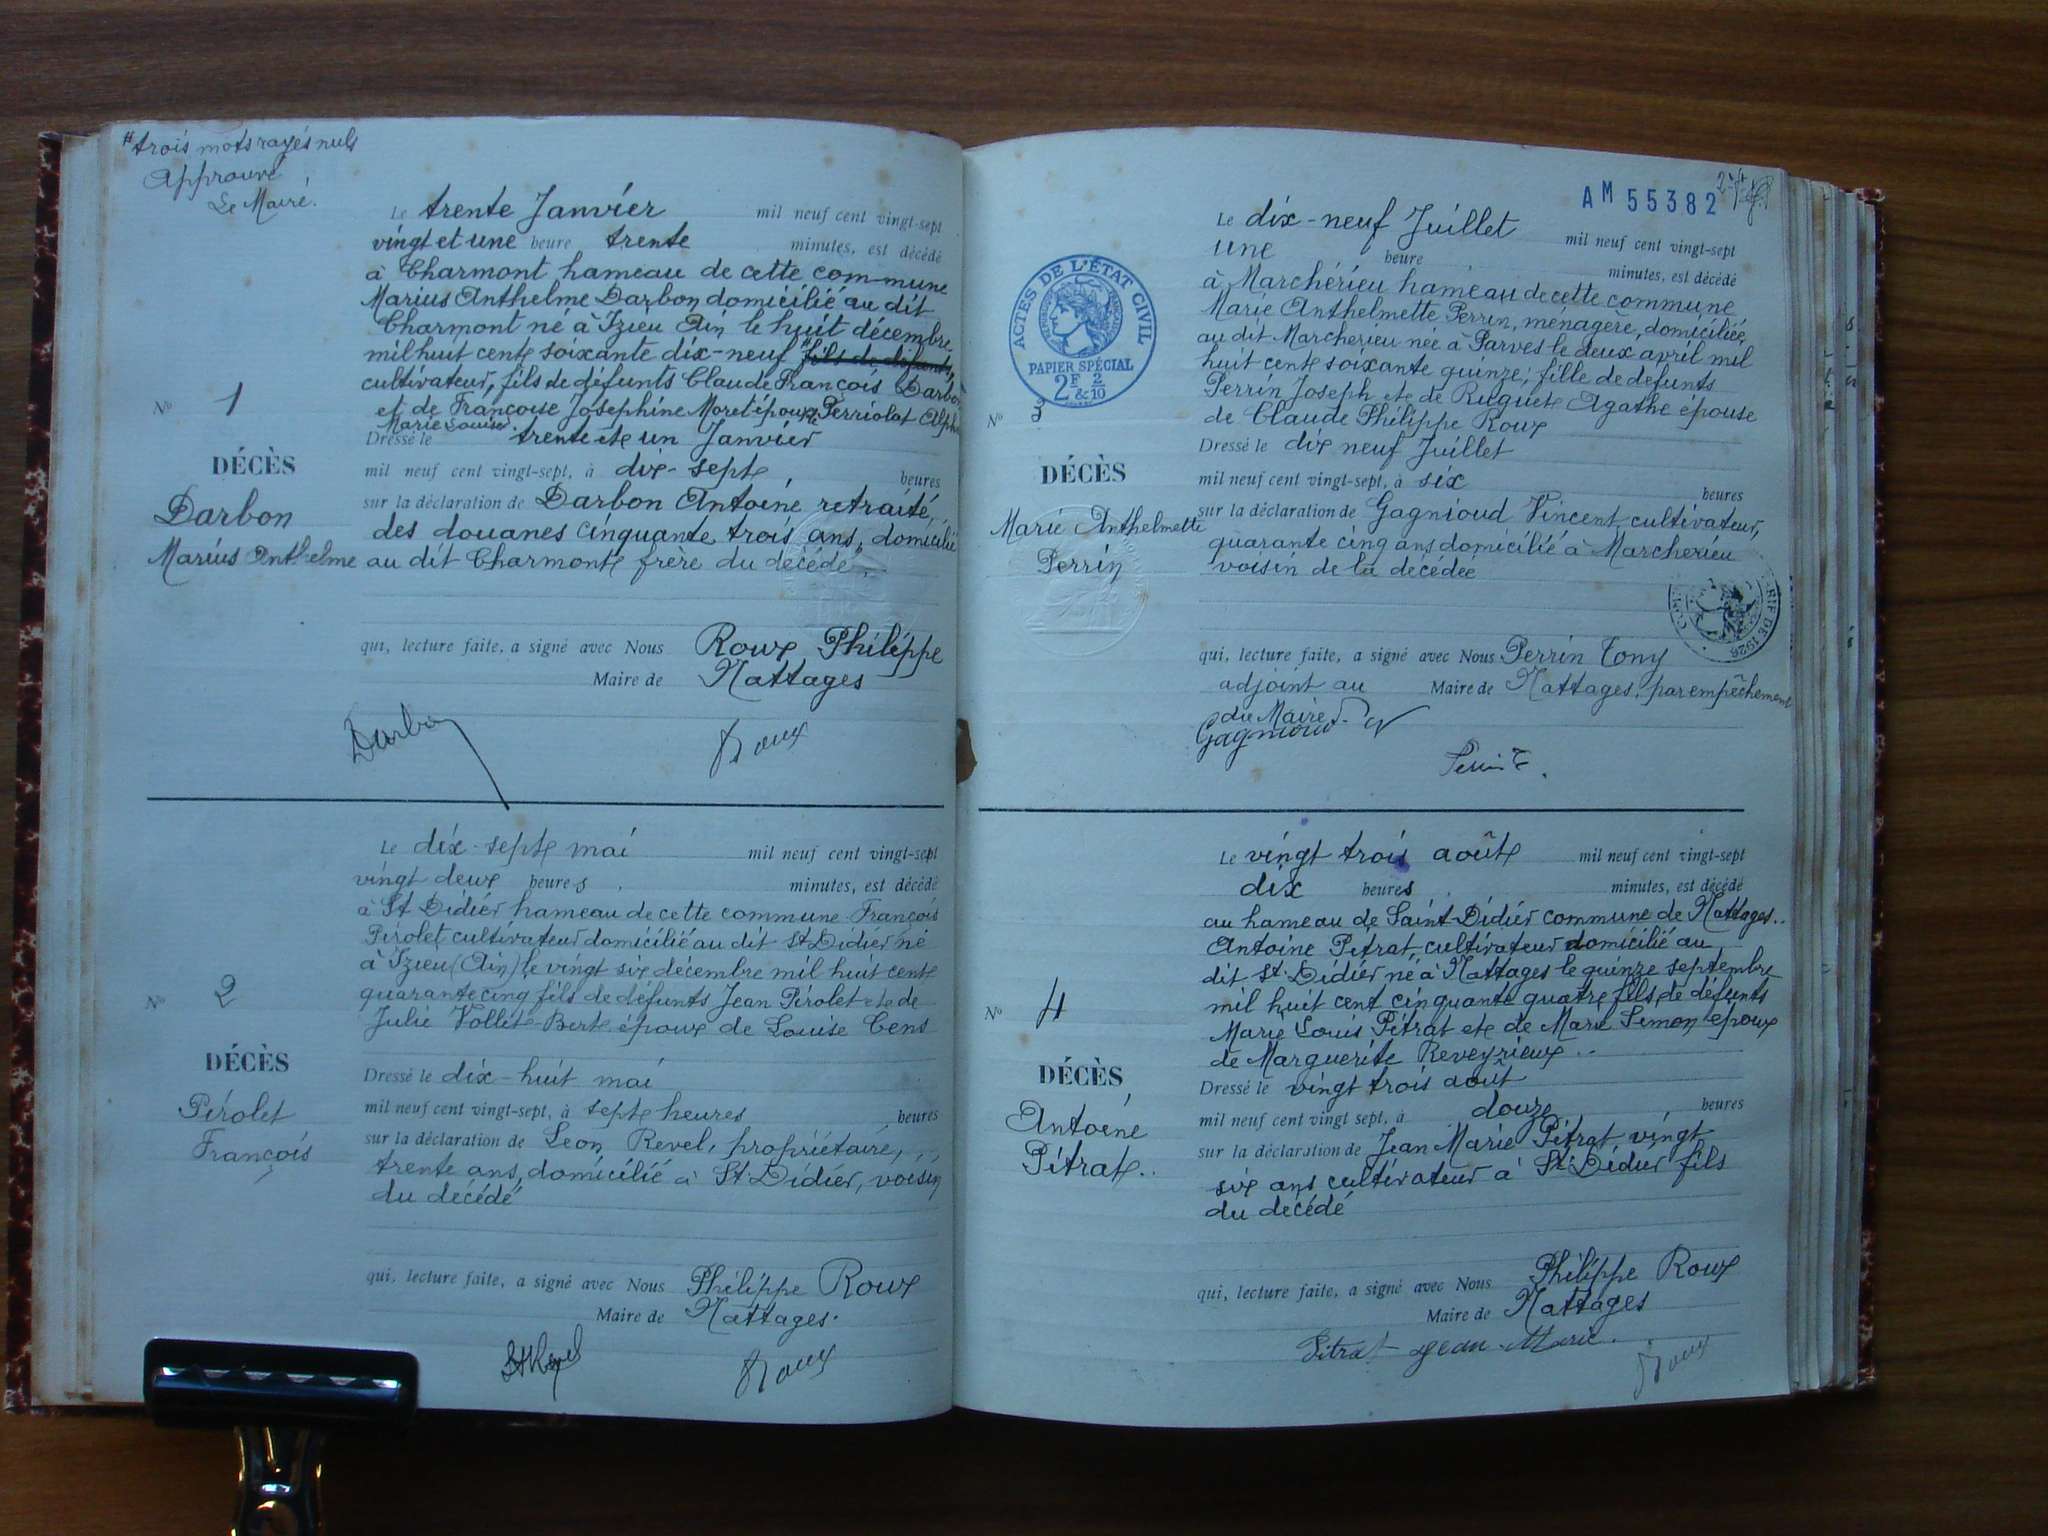 #trois mots rayés nuls
Approuvé
Le Maire.
Le trente Janvier mil neuf cent vingt-sept
vingt et une heure trente minutes, est décédé
à Charmont hameau de cette commune
Marius Anthelme Darbon domicilié au dit
Charmont né à Izieu Ain, le huit décembre
mil huit cent soixante dix-neuf # fils de défunts,
cultivateur, fils de défunts Claude François Darbon
et de Françoise Joséphine Moret époux de Perriolat
Marie Louise.
N° 1
Dressé le trente et un Janvier
DÉCÈS
mil neuf cent vingt-sept, à dix-sept heures
Darbon
Marius Anthelme
sur la déclaration de Darbon Antoine retraité,
des douanes cinquante trois ans, domicilié
au dit Charmont frère du décédé.
qui, lecture faite, a signé avec Nous Roux Philippe
Maire de Nattages
Darbon
Roux
Le dix-sept mai mil neuf cent vingt-sept
vingt deux heures minutes, est décédé
à St Didier hameau de cette commune François
Pirolet cultivateur domicilié au dit St Didier né
à Izieu (Ain) le vingt six décembre mil huit cent
quarante cinq fils de défunts Jean Pirolet et de
Julie Vollet-Bert époux de Louise Cens
N° 2
DÉCÈS
Pirolet
François
Dressé le dix-huit mai
mil neuf cent vingt-sept, à sept heures heures
sur la déclaration de Leon Revel, propriétaire,
trente ans, domicilié à St Didier, voisin
du décédé
qui, lecture faite, a signé avec Nous Philippe Roux
Maire de Nattages.
Roux
AM 55382
ACTES DE L'ÉTAT CIVIL
RÉPUBLIQUE FRANÇAISE
PAPIER SPÉCIAL
2F & 2/10
Le dix-neuf Juillet mil neuf cent vingt-sept
une heure minutes, est décédé
à Marchérieu hameau de cette commune
Marie Anthelmette Perrin, ménagère, domiciliée,
au dit Marcherieu née à Parves le deux avril mil
huit cent soixante quinze; fille de defunts
Perrin Joseph et de Ruguet Agathe épouse
de Claude Philippe Roux
N° 3
Dressé le dix neuf Juillet
DÉCÈS
mil neuf cent vingt-sept, à six heures
Marie Anthelmette
Perrin
sur la déclaration de Gagnioud Vincent, cultivateur,
quarante cinq ans domicilié à Marcherieu
voisin de la décédée
TARIF DE 1926
qui, lecture faite, a signé avec Nous Perrin Tony
adjoint au Maire de Nattages, par empêchement
du Maire
Gagnioud
Perrin T.
Le vingt trois août mil neuf cent vingt-sept
dix heures minutes, est décédé
au hameau de Saint-Didier commune de Nattages..
Antoine Pitrat, cultivateur domicilié au
dit St-Didier né à Nattages le quinze septembre
mil huit cent cinquante quatre fils de défunts
Marie Louis Pitrat et de Marie Simon époux
de Marguerite Reveyrieux..
N° 4
DÉCÈS
Antoine
Pitrat..
Dressé le vingt trois août
mil neuf cent vingt sept, à douze heures
sur la déclaration de Jean Marie Pitrat, vingt
six ans cultivateur à St-Didier fils
du décédé
qui, lecture faite, a signé avec Nous Philippe Roux
Maire de Nattages
Pitrat Jean-Marie.
Roux